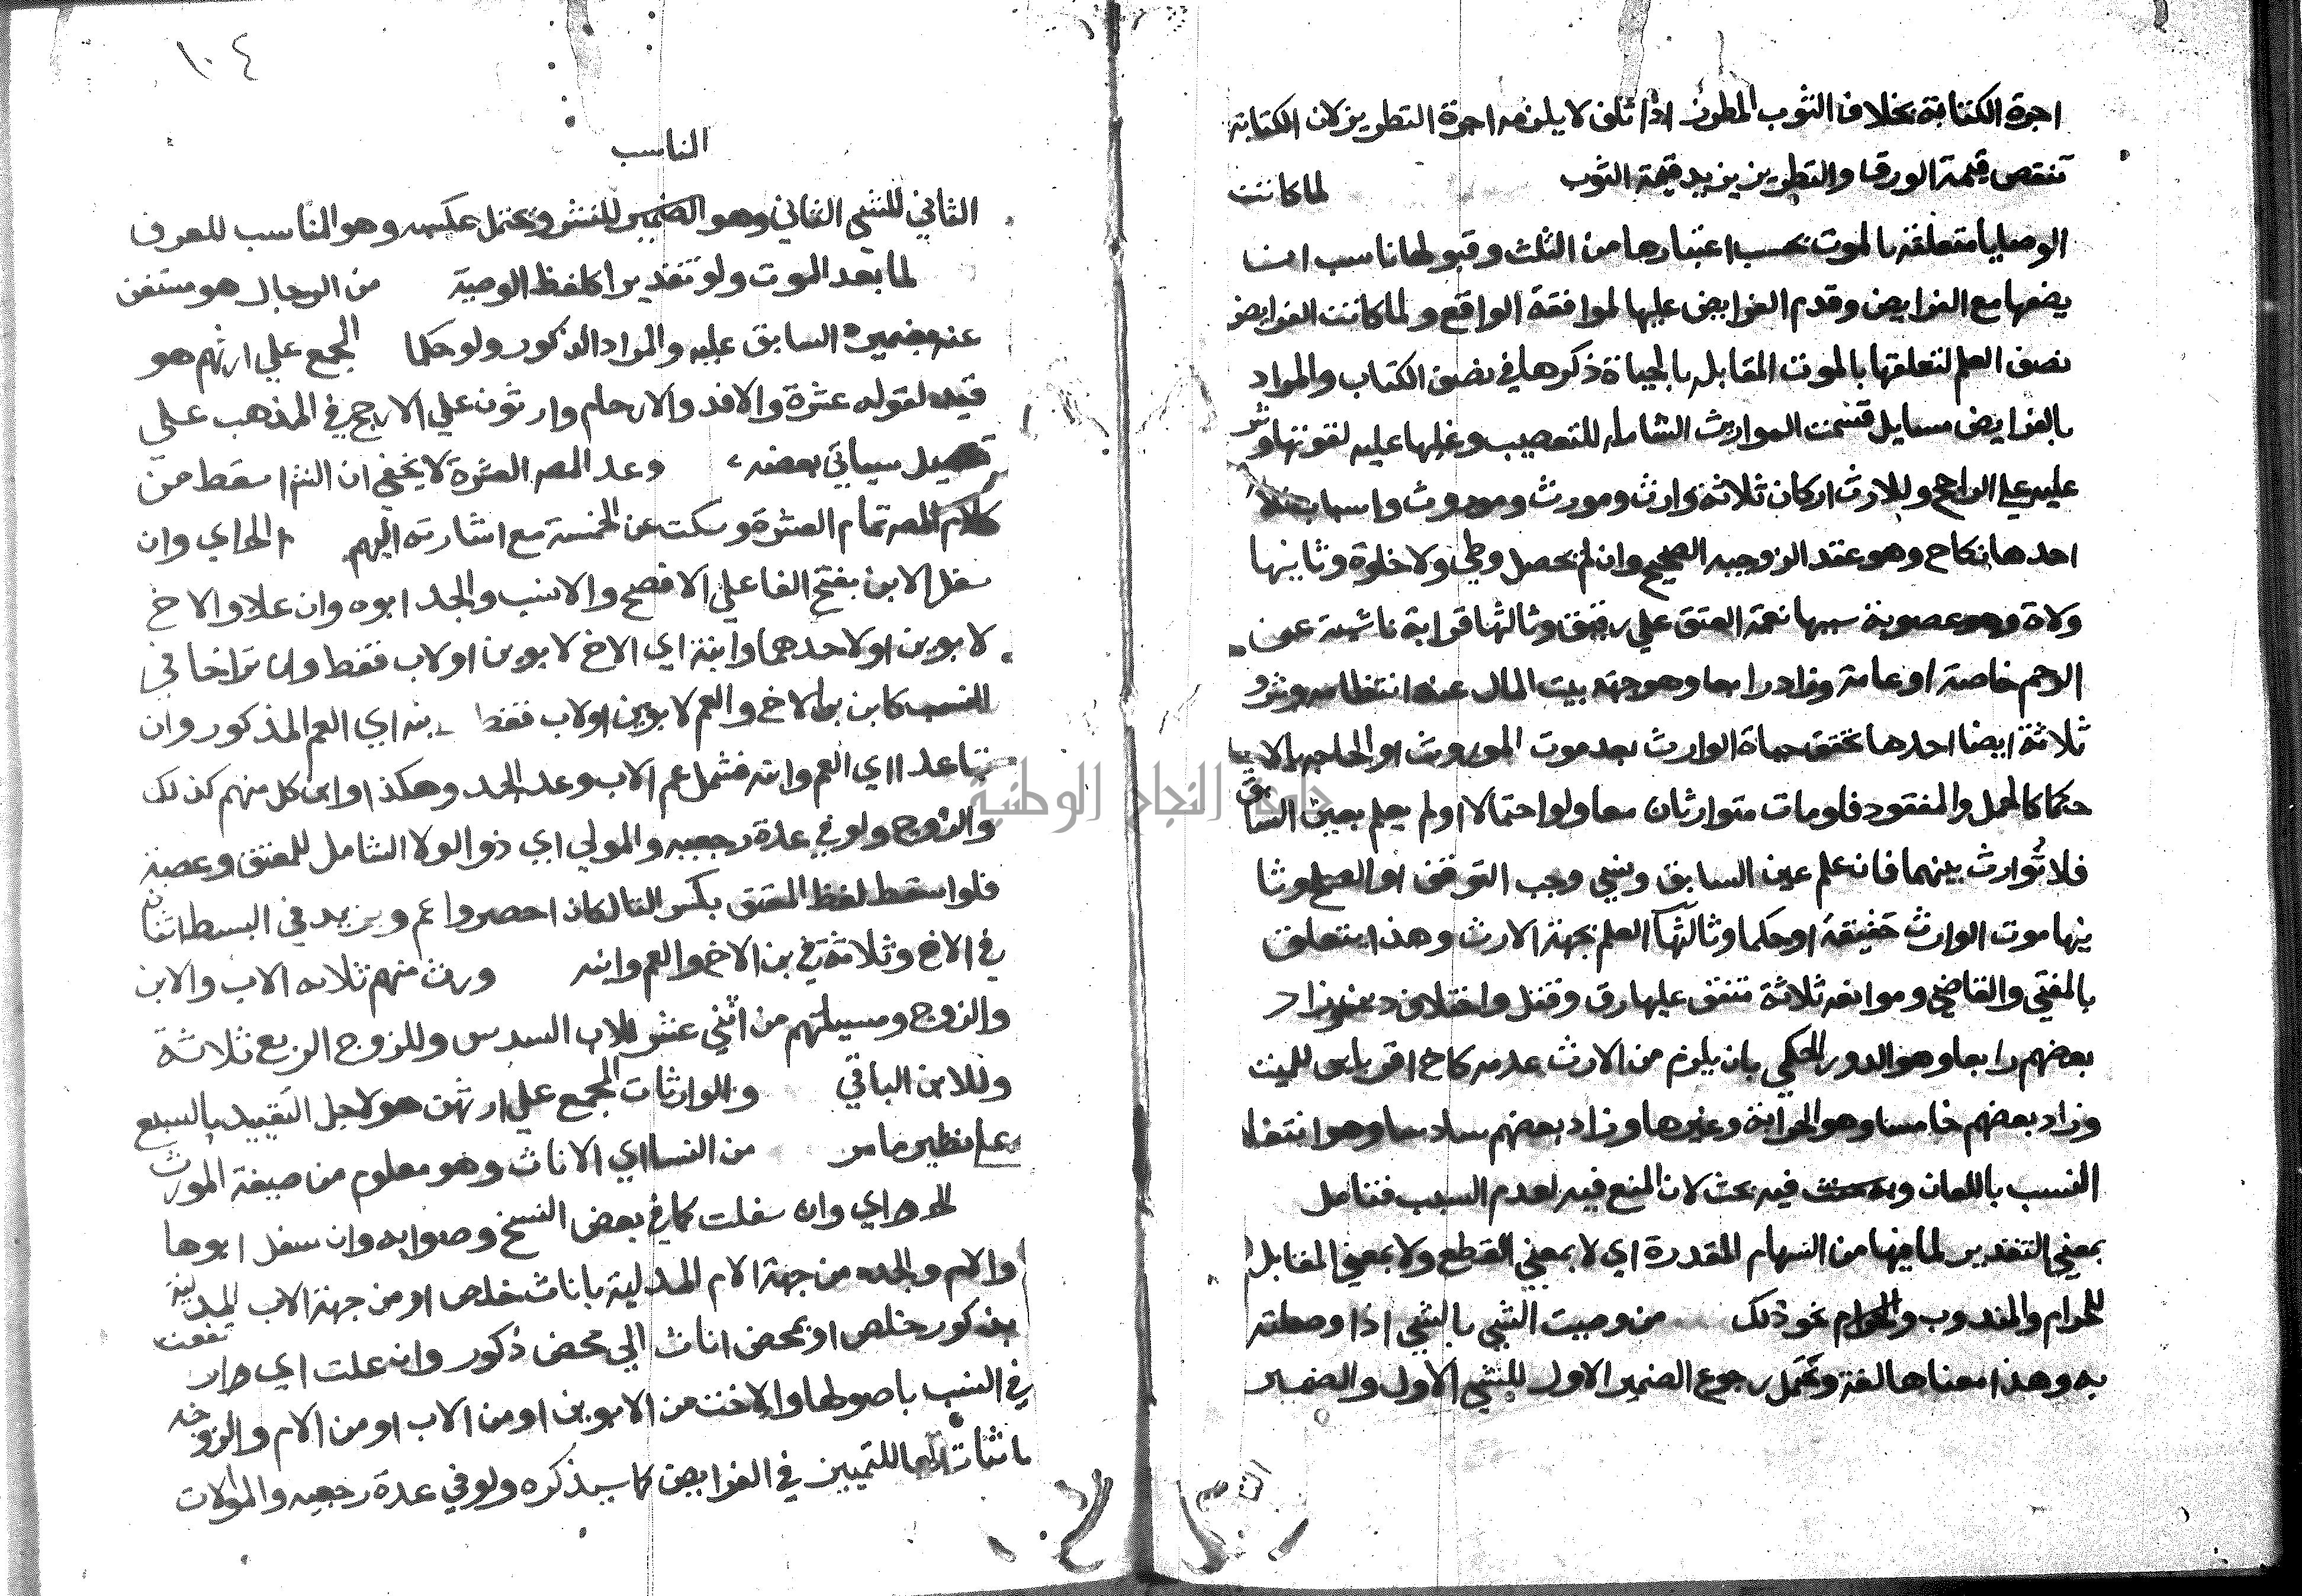 اجرة الكتابة بخلاف الثوب المطرز اذا تلف لا يلزمه اجرة التطريز لان الكتابة
تنقص قيمة الورق والتطريز يزيد قيمة الثوب لما كانت
الوصايا متعلقة بالموت بحسب اعتبارها من الثلث وقبولها ناسب ان
يضعها مع الفرايض وقدم الفرايض عليها لموافقة الواقع ولما كانت الفرايض
نصف العلم لتعلقها بالموت المقابل بالحياة ذكرها في نصف الكتاب والمراد
بالفرايض مسايل قسمت المواريث الشامل للتعصيب وغلبها عليه لقوتها
عليه علي الراجح وللارث اركان ثلاثة وارث ومورث وموروث واسباب ثلا
احدها نكاح وهو عقد الزوجيه الصحيح وان لم يحصل وطي ولا خلوة وثانيها
ولاة وهو عصوبة سببها نعمة العتق علي رقيق وثالثها قرابة ناشية عن
الرحم خاصة او عامة وزاد رابعا وهو جهة بيت المال عند انتظامه وشرو
ثلاثة ايضا احدها تحقق حياة الوارث بعد موت الموروث او الحاجه بالاحيا
حكما كالحمل والمفقود فلو مات متوارثان معا ولو احتمالا او لم يعلم بعين السابق
فلا توارث بينهما فان علم عين السابق ونسي وجب التوقف او الصلح وثا
نيها موت الوارث حقيقة او حكما وثالثها العلم بجهة الارث وهذا يتعلق
بالمفتي والقاضي وموانعه ثلاثة متفق عليها رق وقتل واختلاف دين وزاد
بعضهم رابعا وهو الدور الحكمي بان يلزم من الارث عدمه كاخ اقر بابن للميت
وزاد بعضهم خامسا وهو الحرابة وغيرها وزاد بعضهم سادسا وهو انتفا
النسب باللعان وبحث فيه بحث لان المنع فيه لعدم السبب فتامل
بمعني التقدير لما فيها من السهام المقدرة اي لا بمعني القطع ولا بمعني المقابل
للحرام والمندوب والحرام نحو ذلك من وصيت الشي بالشي اذا وصلته
به وهذا معناها لغة ويحتمل رجوع الضمير الاول للشي الاول والضمير
الثا
١٠٤
الناسب
الثاني للشي الثاني وهو الضمير للشي ويحتمل عكسه وهو المناسب للعرف
لما بعد الموت ولو تقديرا كلفظ الوصية من الرجال هو مستغن
عنه بضميره السابق عليه والمراد الذكور ولو حكما المجمع علي ارثهم هو
قيد لقوله عشرة والافذ والارحام وارثون علي الارجح في المذهب علي
تفصيل سياتي بعضه وعد المصر العشرة لا يخفي ان النثر اسقط من
كلام المصر تمام العشرة وسكت عن الخمسة مع اشارته اليهم الخ اي وان
سفل الابن بفتح الفا علي الافصح والانسب والجد ابوه وان علا والاخ
لابوين او لاحدهما وابنة اي الاخ لابوين او لاب فقط وان تراخا في
النسب كابن ابن الاخ والعم لابوين او لاب فقط بنه اي العم المذكور وان
تباعدا اي العم وابنه فشمل عم الاب وعد الجد وهكذا وابن كل منهم كذلك
والزوج ولو في عدة رجعيه والمولي اي ذو الولا الشامل للمعتق وعصبة
فلو اسقط لفظ المعتق بكسر التا لكان احصر واعم ويزيد في البسط اثنان
في الاخ وثلاثة في بن الاخ والعم وابنه ورث منهم ثلاثه الاب والابن
والزوج ومسيلتهم من اثني عشر للاب السدس وللزوج الربع ثلاثة
وللابن الباقي والوارثات المجمع علي ارثهن هو لاجل التقييد بالسبع
علي نظير ما مر من النسا اي الاناث وهو معلوم من صيغة المورث
الخ اي وان سفلت كما في بعض النسخ وصوابه وان سفل ابوها
والام والجده من جهة الام المدلية باناث خلص او من جهة الاب المدلية
بذكور خلص او بمحض اناث الي محض ذكور وان علت اي وار تفعت
في النسب باصولها والاخت من الابوين او من الاب او من الام والزوجه
باثبات للتمييز في الفرايض كما سيذكره ولو في عدة رجعيه والمولات
جامعة النجاح الوطنية